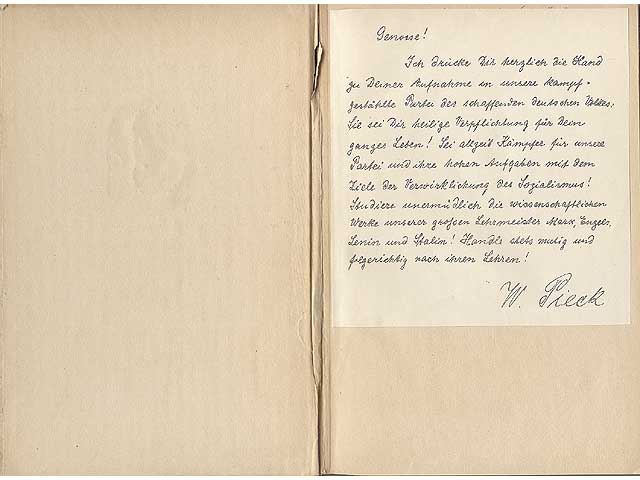 Genosse!
Ich drücke Dir herzlich die Hand
zu Deiner Aufnahme in unsere kampf-
gestählte Partei des schaffenden deutschen Volkes.
Sie sei Dir heilige Verpflichtung für Dein
ganzes Leben! Sei allzeit Kämpfer für unsere
Partei und ihre hohen Aufgaben mit dem
Ziele der Verwirklichung des Sozialismus!
Studiere unermüdlich die wissenschaftlichen
Werke unserer großen Lehrmeister Marx, Engels,
Lenin und Stalin! Handle stets mutig und
folgerichtig nach ihren Lehren!
W. Pieck